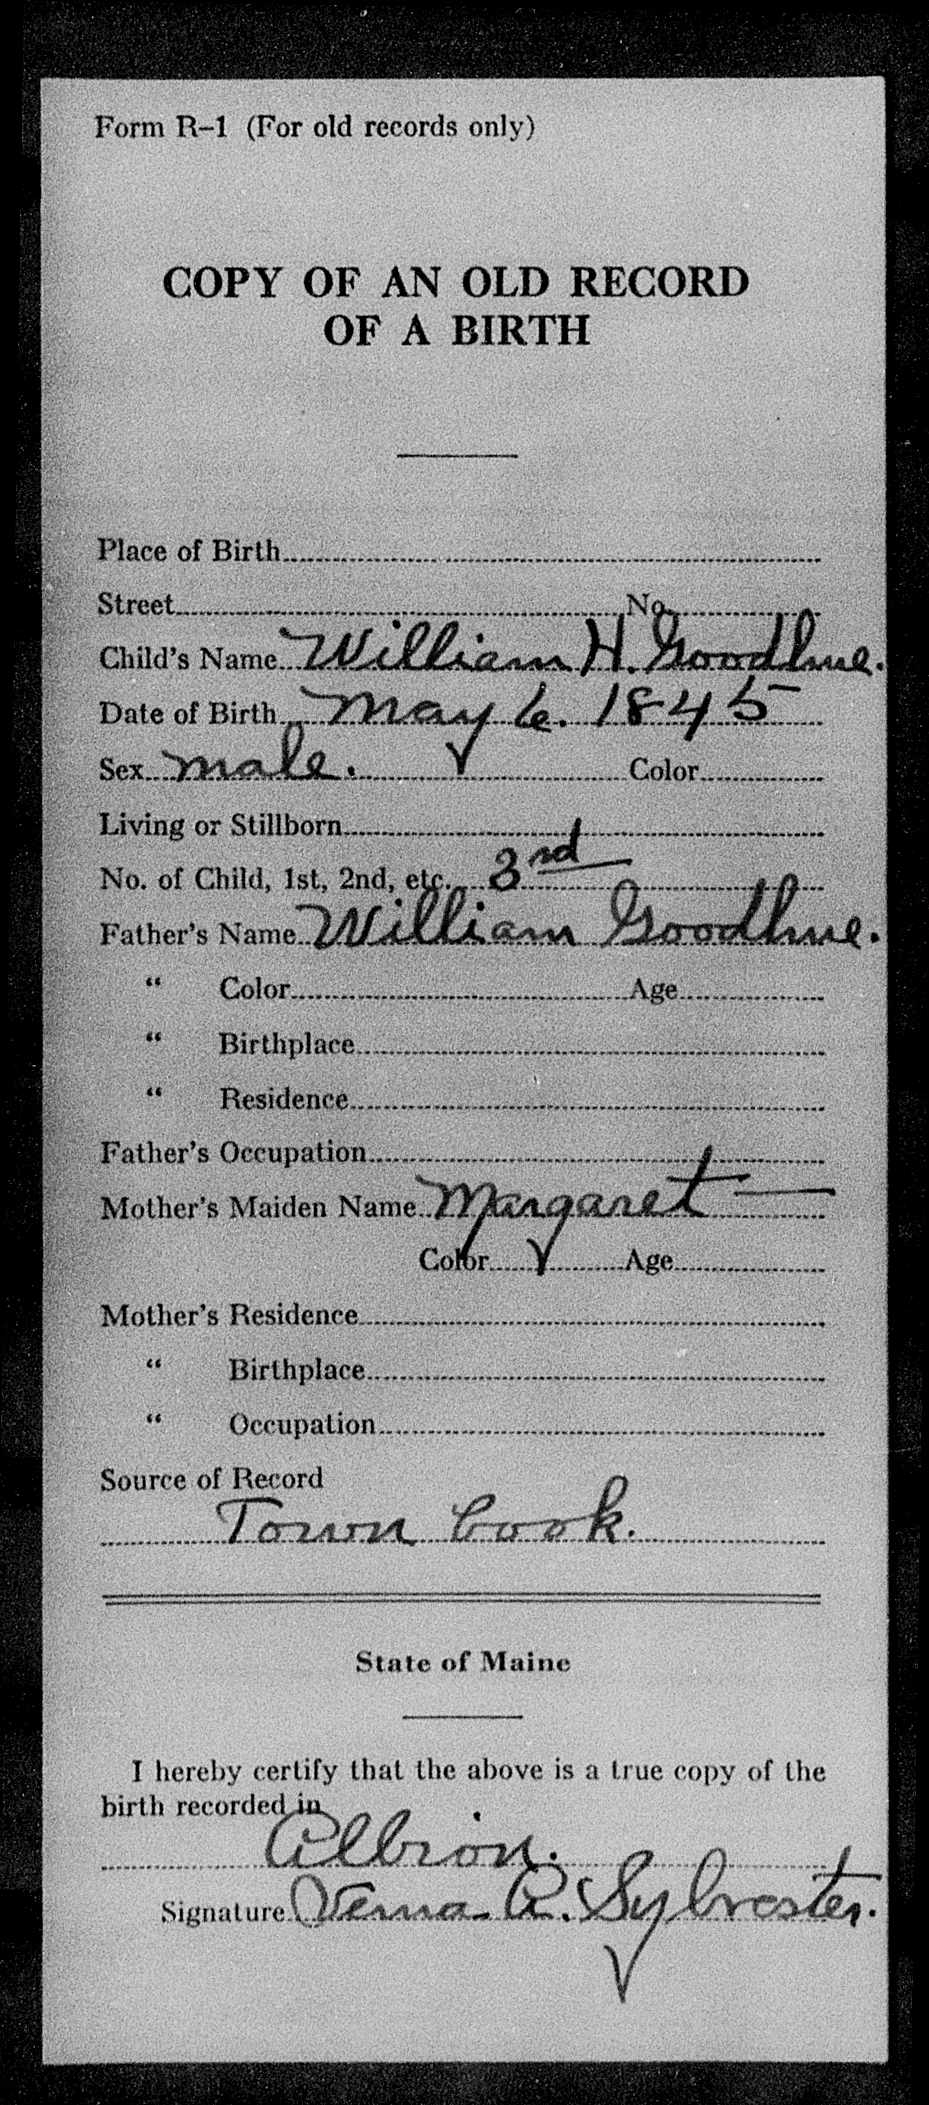 Form R-1 (For old records only)
COPY OF AN OLD RECORD
OF A BIRTH
Place of Birth
Street No.
Child's Name William H. Goodhue.
Date of Birth May 6. 1845
Sex male. Color
Living or Stillborn
No. of Child, 1st, 2nd, etc. 3rd
Father's Name William Goodhue.
" Color Age
" Birthplace
" Residence
Father's Occupation
Mother's Maiden Name Margaret —
Color Age
Mother's Residence
" Birthplace
" Occupation
Source of Record
Town book.
State of Maine
I hereby certify that the above is a true copy of the
birth recorded in
Albion.
Signature Verna A. Sylvester.